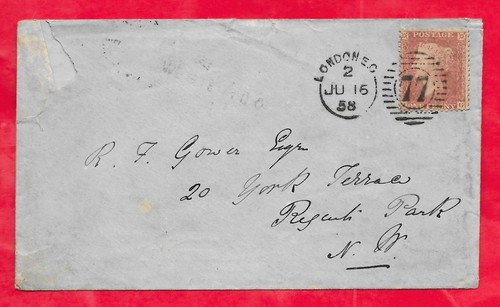 POSTAGE
LONDON E.C
2
JU 16
58
77
R. F. Gower Esqre
20 York Terrace
Regents Park
N. W.